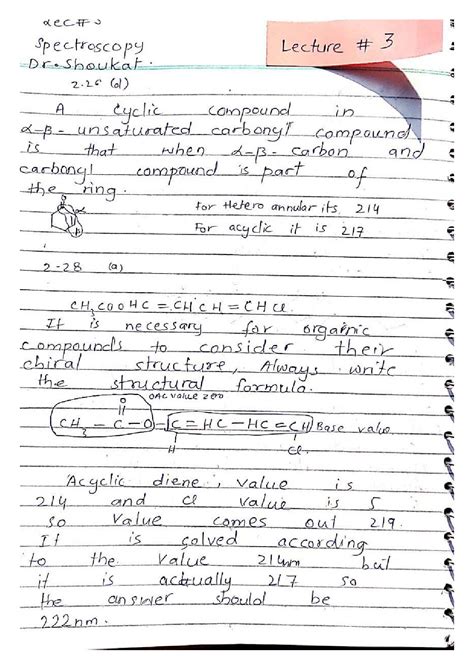 Lec#3
Lecture # 3
Spectroscopy
Dr. Shoukat.
2.26 (d)
A cyclic compound in
α-β- unsaturated carbonyl compound
is that when α-β- carbon and
carbonyl compound is part of
the ring.
O
α
β
for Hetero annular its 214
For acyclic it is 217
2-28 (a)
CH3COOHC = CHCH = CHCl
It is necessary for organic
compounds to consider their
chiral structure, Always write
the structural formula.
OAC value zero
O
CH3 - C - O - C = HC - HC = CH Base value
H Cl
Acyclic diene, value is
214 and Cl value is 5
so value comes out 219.
It is solved according
to the value 214nm but
it is actually 217 so
the answer should be
222nm.